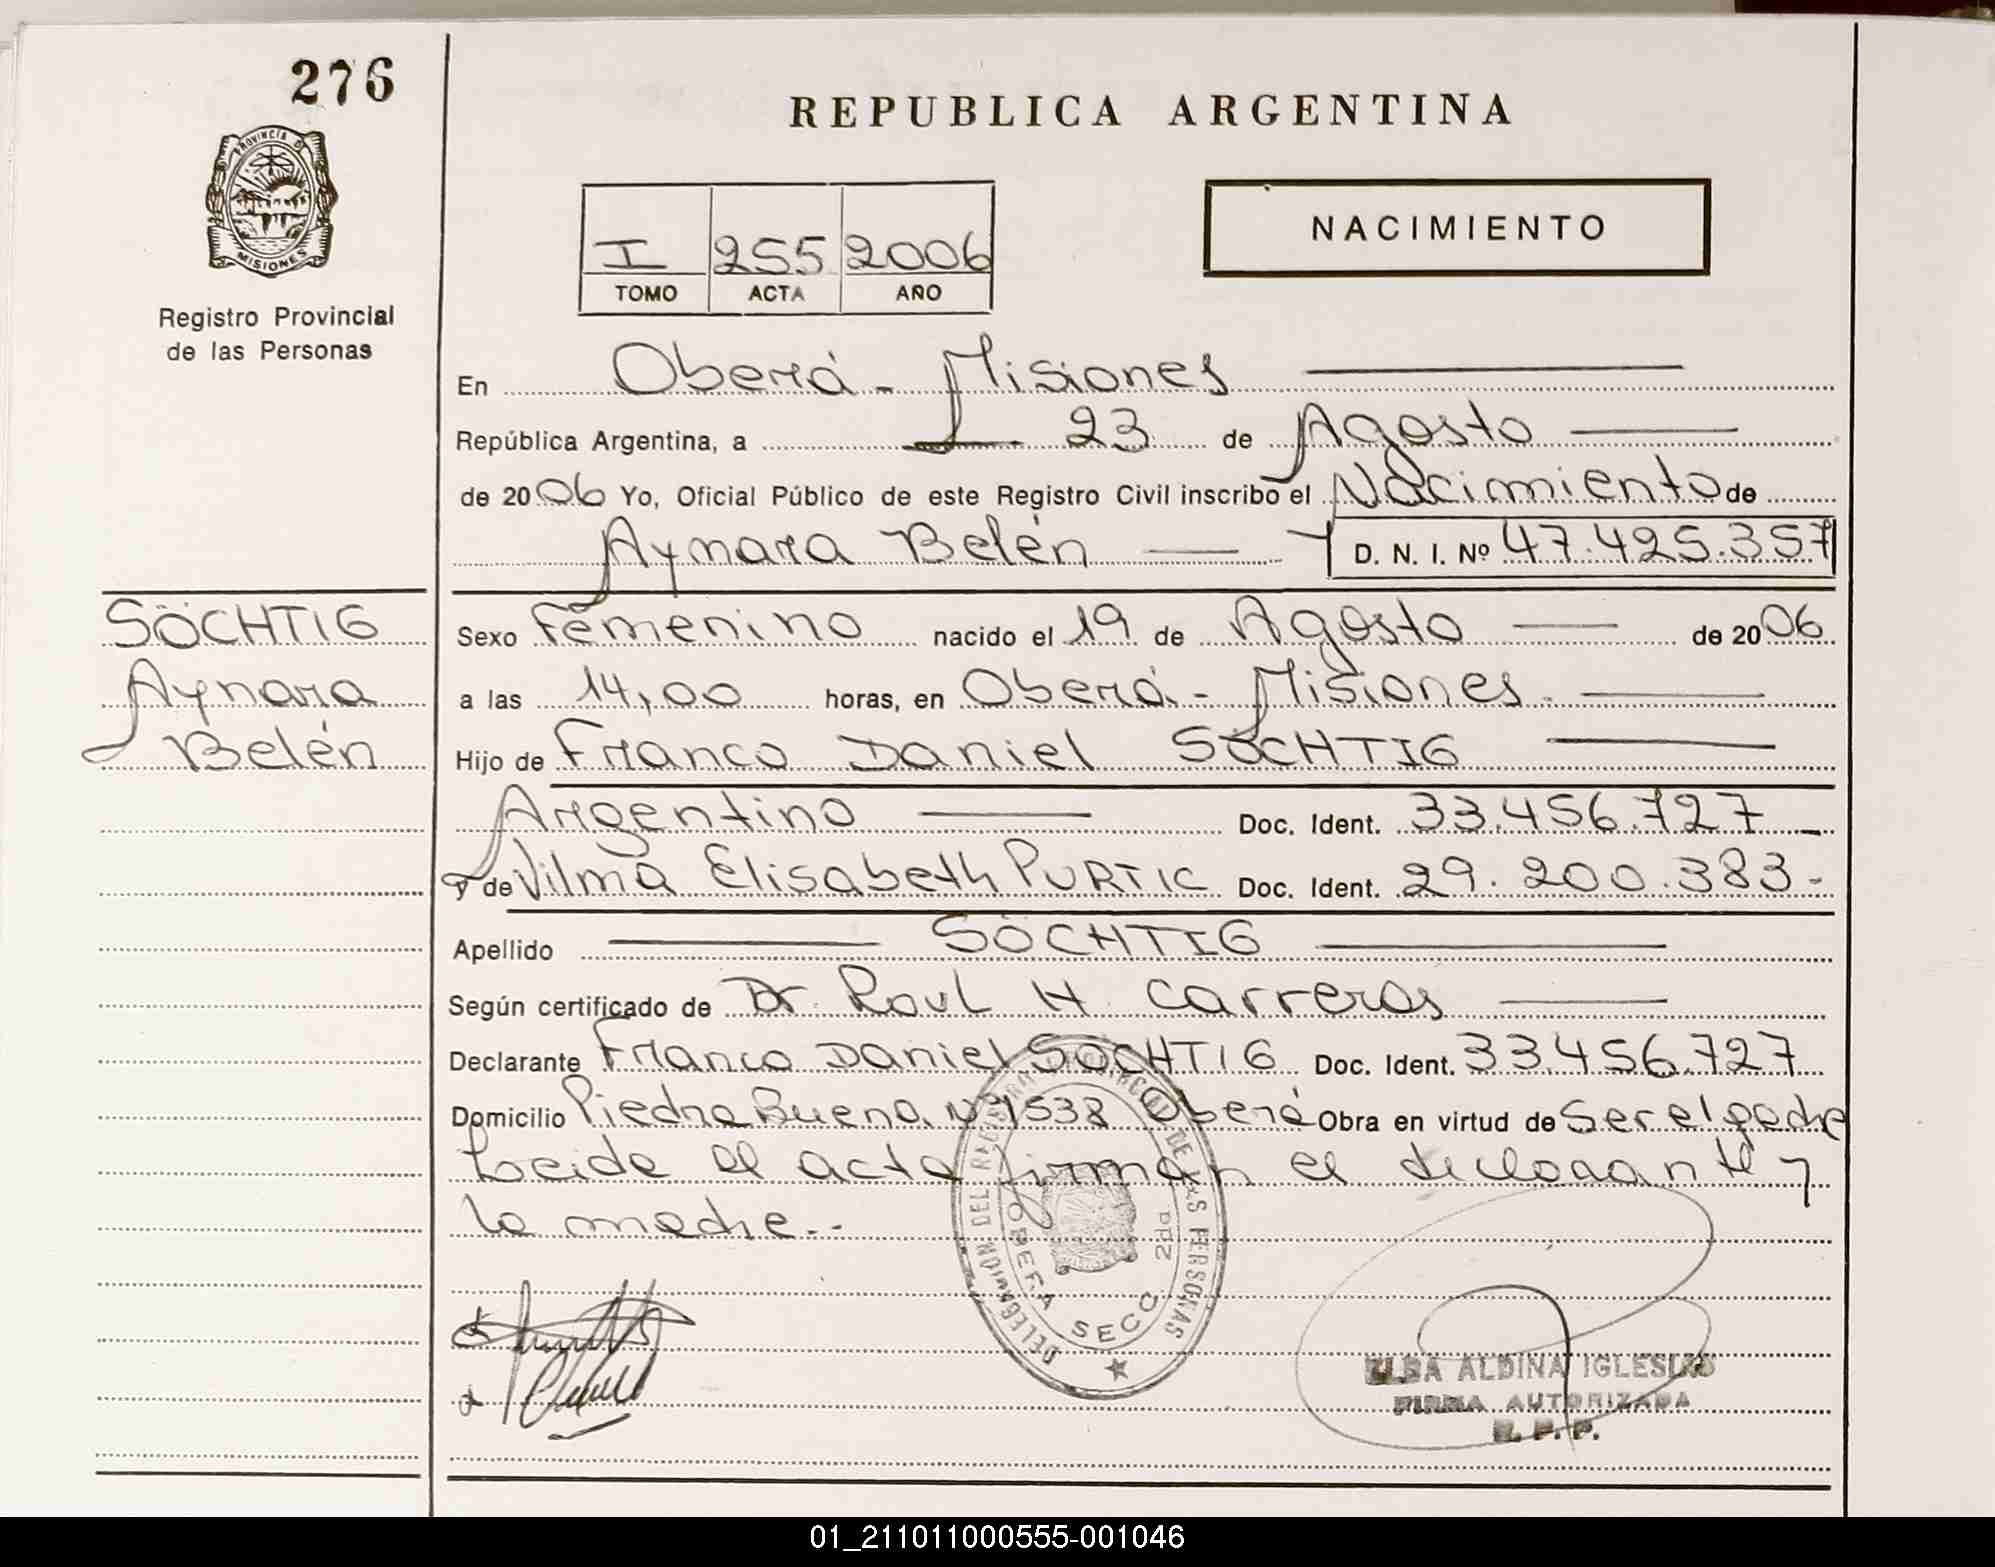 276
REPUBLICA ARGENTINA
PROVINCIA DE
MISIONES
Registro Provincial
de las Personas
I 255 2006
TOMO ACTA AÑO
NACIMIENTO
En Oberá - Misiones
República Argentina, a 23 de Agosto
de 2006 Yo, Oficial Público de este Registro Civil inscribo el Nacimiento de
Aymara Belén D. N. I. Nº 47.425.357
SÖCHTIG
Aymara
Belén
Sexo Femenino nacido el 19 de Agosto de 2006
a las 14,00 horas, en Oberá - Misiones.
Hijo de Franco Daniel SÖCHTIG
Argentino Doc. Ident. 33.456.727
y de Vilma Elisabeth PURTIC Doc. Ident. 29.200.383-
Apellido SÖCHTIG
Según certificado de Dr. Raul H. Carreras
Declarante Franco Daniel SÖCHTIG Doc. Ident. 33.456.727
Domicilio Piedra Buena Nº 1538 Oberá Obra en virtud de Ser el padre
Leida el acta firman el declarante y
la madre.-
DELEGACION DEL REGISTRO PROVINCIAL DE LAS PERSONAS
OBERA SECC 2da
ELBA ALDINA IGLESIAS
FIRMA AUTORIZADA
R. P. P.
01_211011000555-001046